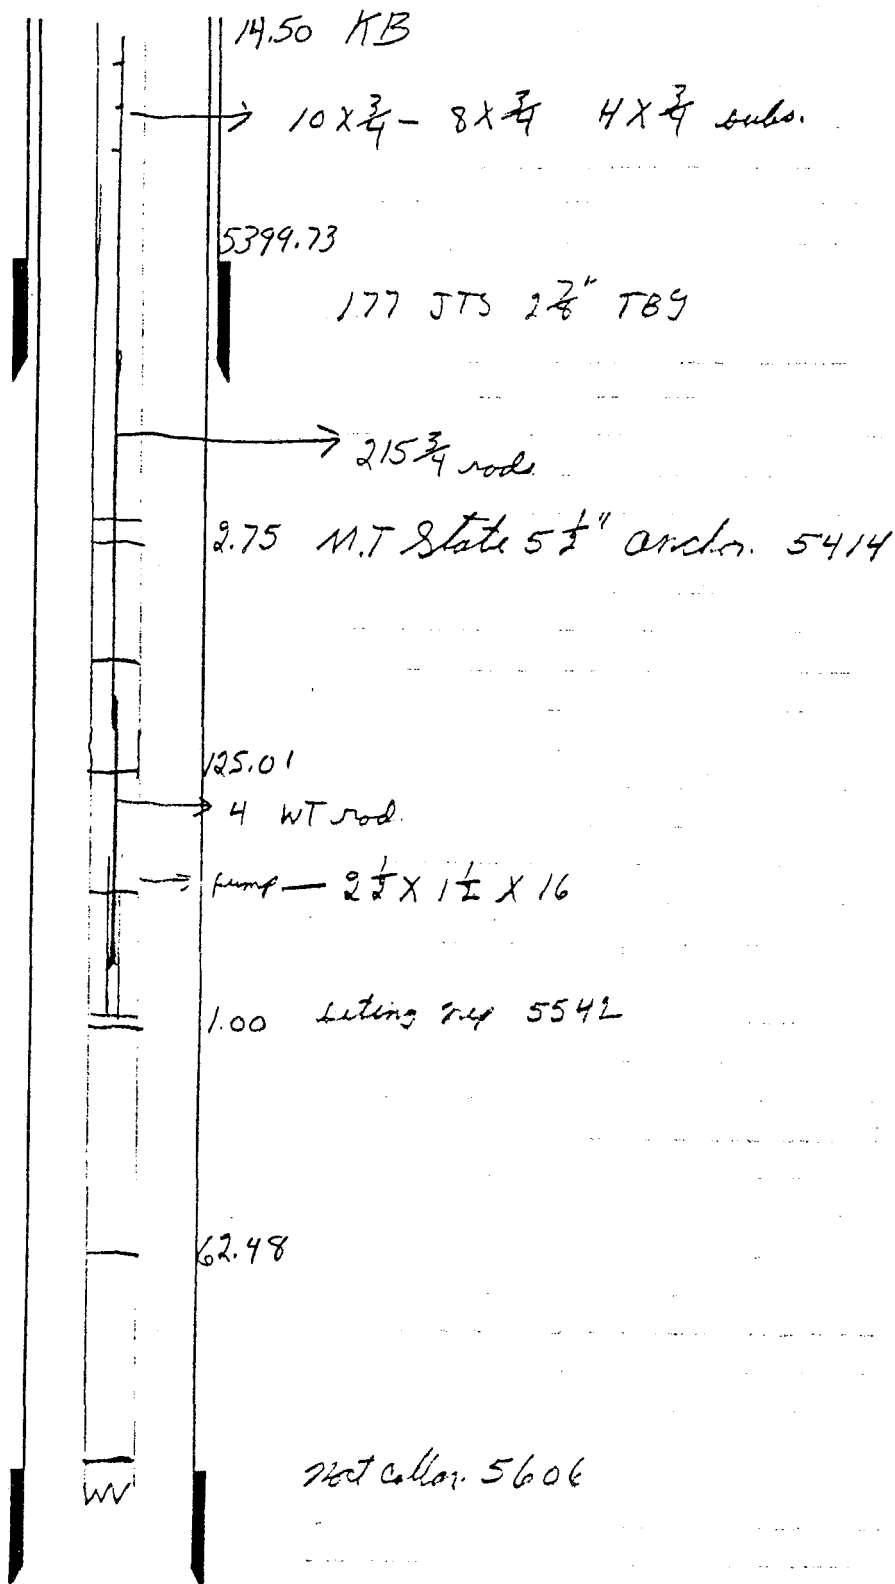 14.50 KB
10 X 3/4 - 8 X 3/4 4 X 3/4 subs.
5399.73
177 JTS 2 7/8" TBG
215 3/4 rods
2.75 M.T State 5 1/2" anchor. 5414
125.01
4 WT rod.
pump — 2 1/2 X 1 1/2 X 16
1.00 seting 5542
62.48
collar. 5606